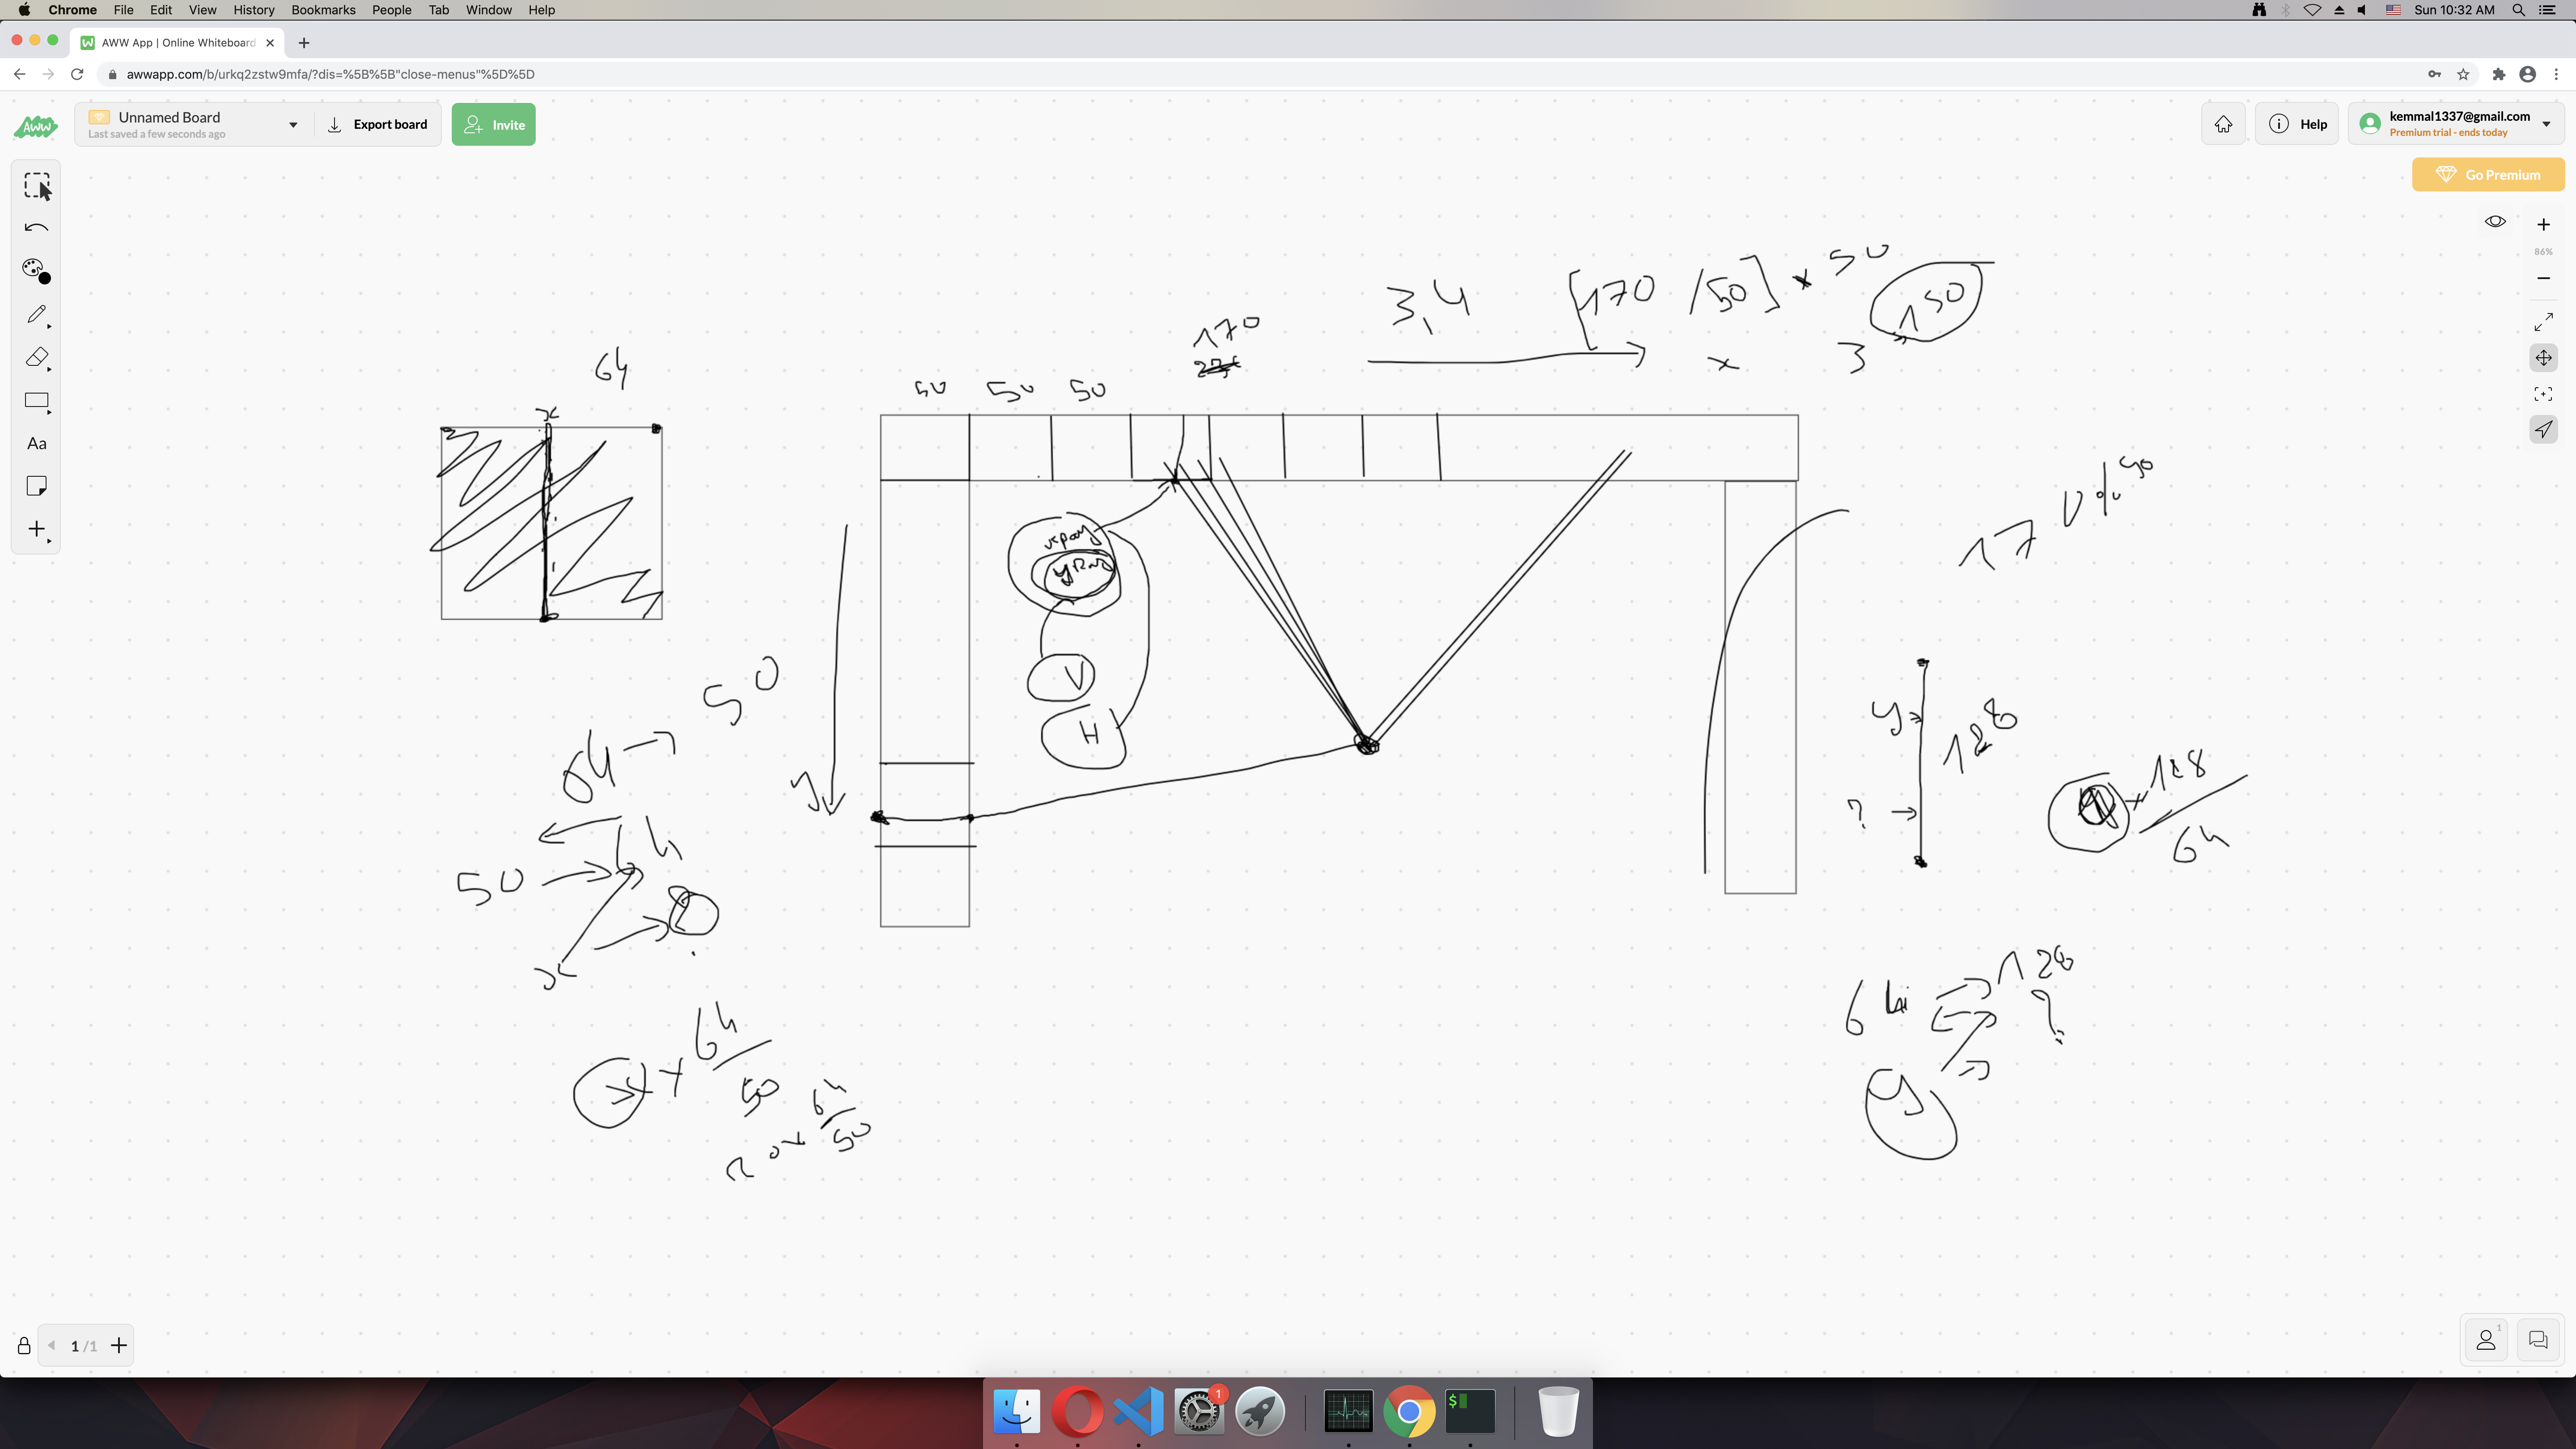 Chrome File Edit View History Bookmarks People Tab Window Help
Sun 10:32 AM
AWW App | Online Whiteboard
awwapp.com/b/urkq2zstw9mfa/?dis=%5B%5B"close-menus"%5D%5D
AWW
Unnamed Board
Last saved a few seconds ago
Export board
Invite
Help
kemmal1337@gmail.com
Premium trial - ends today
Go Premium
86%
Aa
3,4 [170 /50] x 50
150
x 3
170
64
50 50 50
x
170%50
V
H
50
64
y
y
128
?
x 128
64
50
64
x
64
128
?
y
x 64
50
64
50
1 /1
1
1
$